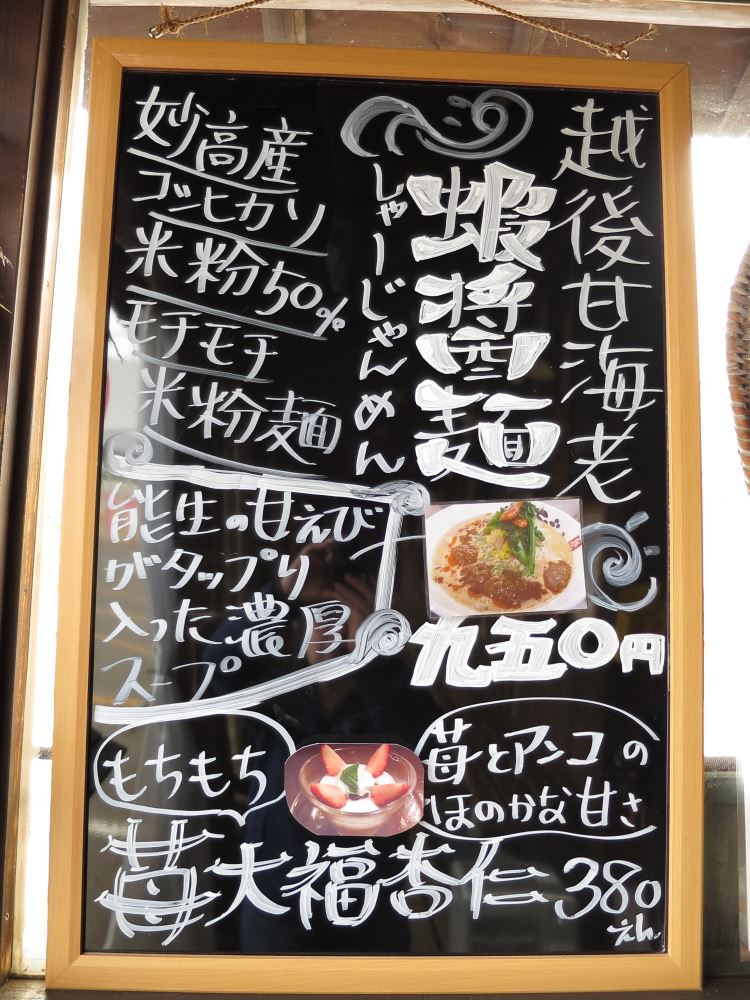 越後甘海老
蝦醬麺
しゃーじゃんめん
九五〇円
妙高産
コシヒカリ
米粉50%
モチモチ
米粉麺
能生の甘えび
がタップリ
入った濃厚
スープ
苺とアンコの
ほのかな甘さ
もちもち
苺大福杏仁 380
えん